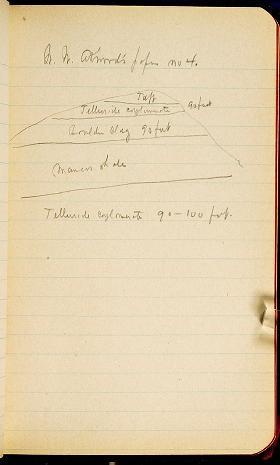 W. W. Atwood's paper no 4.
Tuff
Telluride conglomerate 90 feet
Boulder Clay 90 feet
Mancos shale
Telluride conglomerate 90-100 feet.